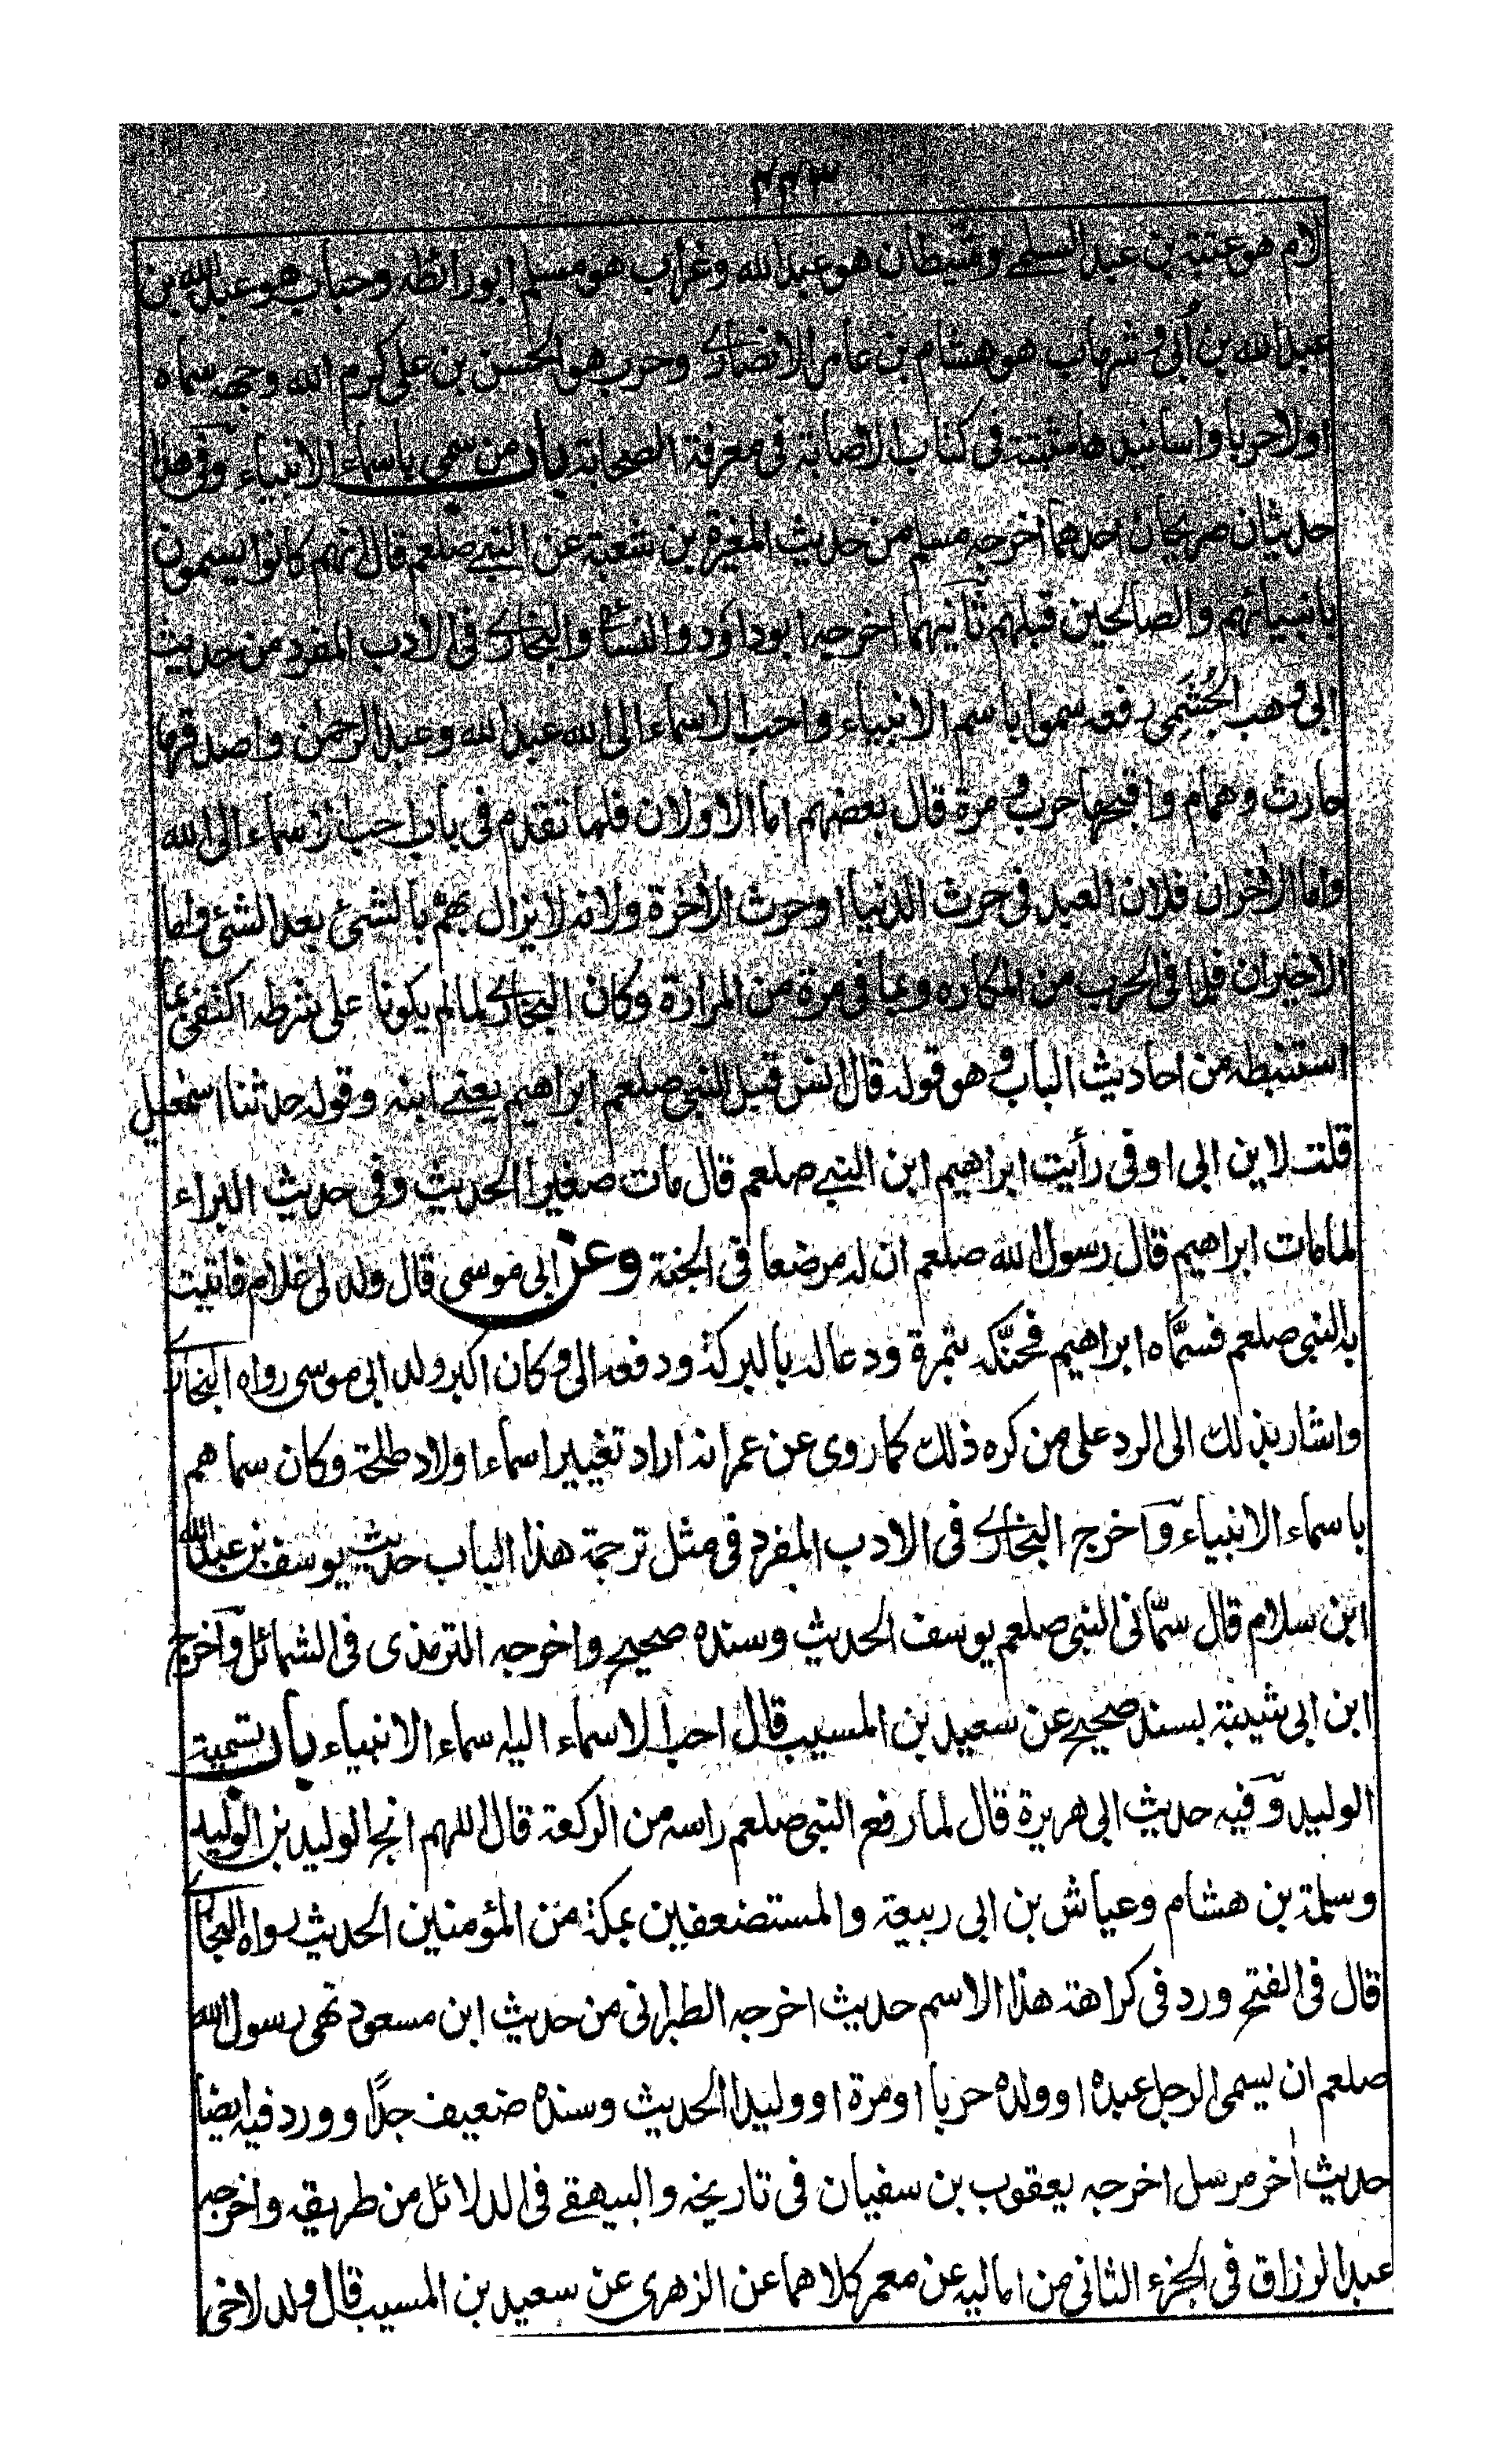 لام هو عتبة بن عبد السلمے وشيطان هو عبد الله وغراب هو مسلم ابو رائطه وحباب هو عبد الله بن
عبد الله بن اُبى وشهاب هو هشام بن عامر الانصارے وحرب هو الحسن بن على كرم الله وجهه سماه
اولا حربا واسانيدها مثبتة فى كتاب الاصابة فى معرفة الصحابة باب من سمى باسماء الانبياء وفى هذا
حديثان صريحان احدهما اخرجه مسلم من حديث المغيرة بن شعبة عن النبے صلعم قال انهم كانوا يسمون
بانبيائهم والصالحين قبلهم ثانيهما اخرجه ابوداؤد والنسائے والبخارے فى الادب المفرد من حديث
ابى وهب الجُشَمِى رفعه سموا باسم الانبياء واحب الاسماء الى الله عبد الله وعبد الرحمٰن واصدقها
حارث وهمام واقبحها حرب ومرة قال بعضهم اما الاولان فلما تقدم فى باب احب الاسماء الى الله
واما الاٰخران فلان العبد فى حرث الدنيا او حرث الاٰخرة ولانه لا يزال يهمّ بالشئ بعد الشئ واما
الاخيران فلما فى الحرب من المكاره وبما فى مرة من المرارة وكان البخارے لما لم يكونا على شرطه اكتفى بما
استنبطه من احاديث الباب وهو قوله قال انس قبل النبى صلعم ابراهيم يعنے ابنه وقوله حدثنا اسمٰعيل
قلت لابن ابى اوفى رأيت ابراهيم ابن النبے صلعم قال مات صغيرا الحديث وفى حديث البراء
لما مات ابراهيم قال رسول الله صلعم ان له مرضعا فى الجنة وعن ابى موسى قال ولد لى غلام فاتيت
به النبى صلعم فسمَّاه ابراهيم فحنّكه بتمرة ودعا له بالبركة ودفعه الى وكان اكبر ولد ابى موسى رواه البخارے
واشار بذلك الى الرد على من كره ذلك كما روى عن عمر انه اراد تغيير اسماء اولاد طلحة وكان سماهم
باسماء الانبياء واخرج البخارے فى الادب المفرد فى مثل ترجمة هذا الباب حديث يوسف بن عبد الله
ابن سلام قال سمّانى النبى صلعم يوسف الحديث وسنده صحيح واخرجه الترمذى فى الشمائل واخرج
ابن ابى شيبة بسند صحيح عن سعيد بن المسيب قال احب الاسماء اليه اسماء الانبياء باب تسمية
الوليد وفيه حديث ابى هريرة قال لما رفع النبى صلعم راسه من الركعة قال اللهم انج الوليد بن الوليد
وسلمة بن هشام وعياش بن ابى ربيعة والمستضعفين بمكة من المؤمنين الحديث رواه البخارے
قال فى الفتح ورد فى كراهة هذا الاسم حديث اخرجه الطبرانى من حديث ابن مسعود نهى رسول الله
صلعم ان يسمى الرجل عبده او ولده حربا او مرة او وليدا الحديث وسنده ضعيف جدًّا وورد فيه ايضا
حديث اٰخر مرسل اخرجه يعقوب بن سفيان فى تاريخه والبيهقے فى الدلائل من طريقه واخرجه
عبد الرزاق فى الجزء الثانى من اماليه عن معمر كلاهما عن الزهرى عن سعيد بن المسيب قال ولد لاخى